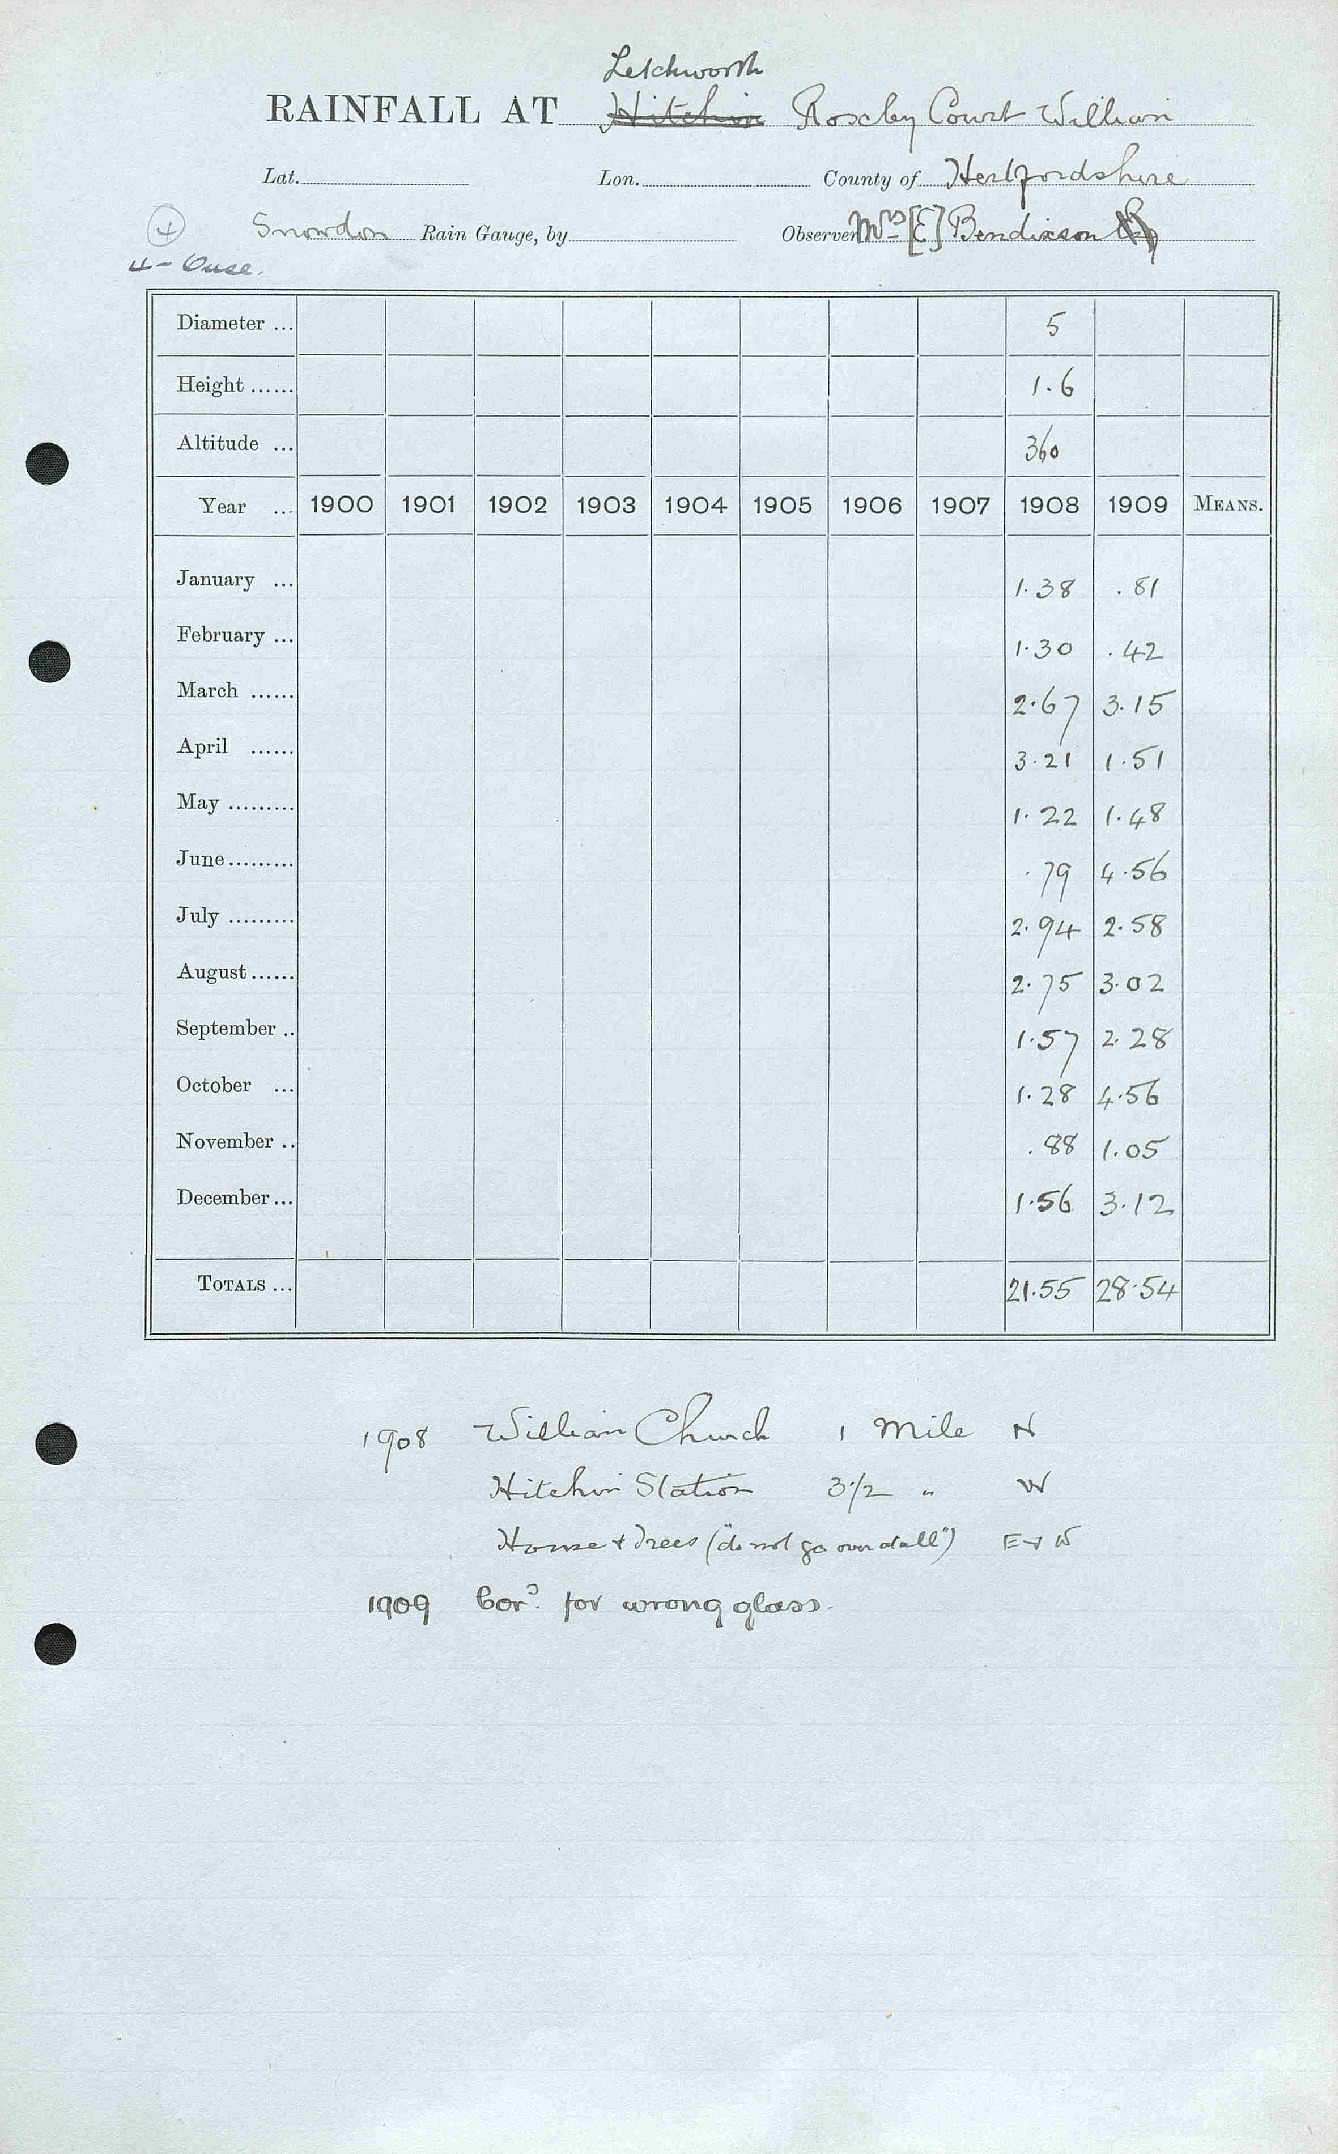 Letchworth
RAINFALL AT Hitchin Roxley Court Willian
Lat. Lon. County of Hertfordshire
4 Snowdon Rain Gauge, by Observer Mrs [E] Bendixson
4 - Ouse.
Diameter ... 5
Height ...... 1.6
Altitude ... 360
Year ... 1900 1901 1902 1903 1904 1905 1906 1907 1908 1909 MEANS.
January ... 1.38 .81
February ... 1.30 .42
March ...... 2.67 3.15
April ...... 3.21 1.51
May ......... 1.22 1.48
June ......... .79 4.56
July ......... 2.94 2.58
August ...... 2.75 3.02
September .. 1.57 2.28
October ... 1.28 4.56
November .. .88 1.05
December ... 1.56 3.12
TOTALS ... 21.55 28.54
1908 Willian Church 1 Mile N
Hitchin Station 3 1/2 " W
House & Trees ("do not go over at all") E & W
1909 Cord. for wrong glass.